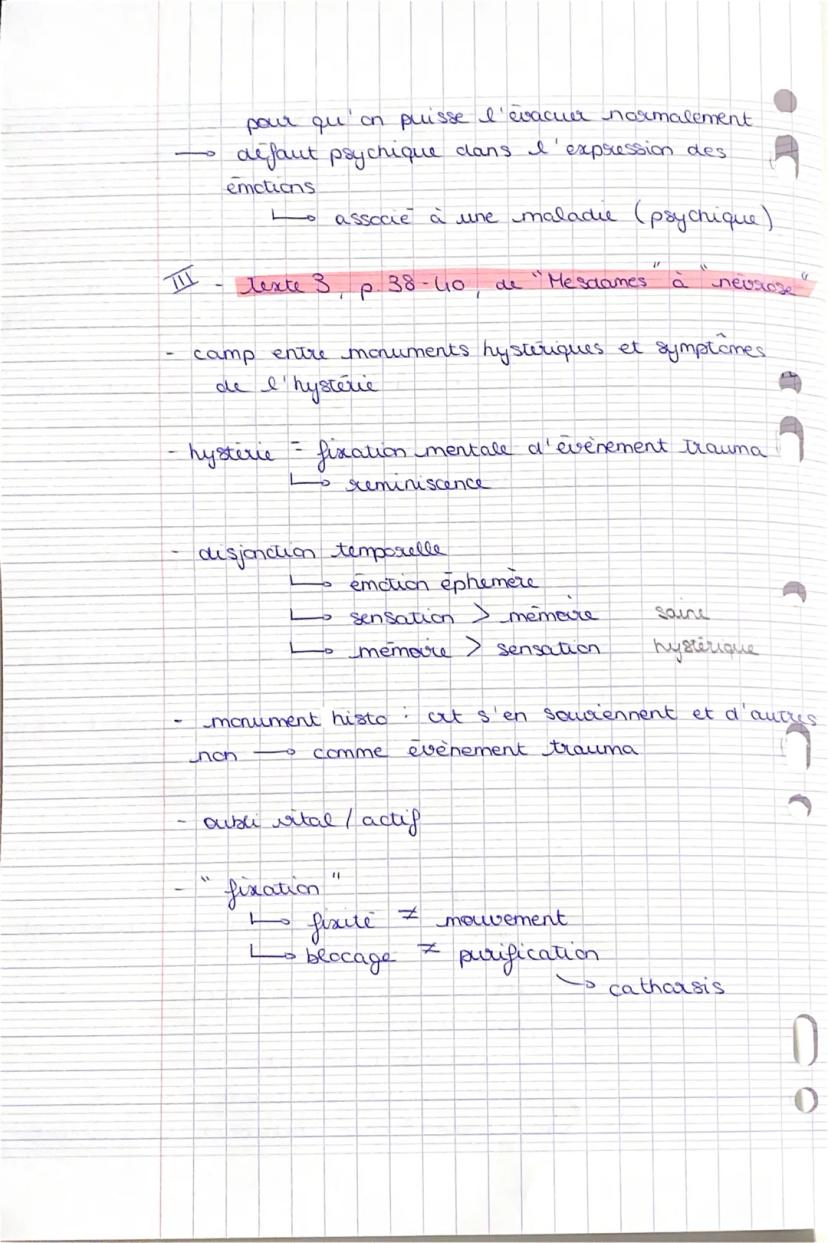 pour qu'on puisse l'évacuer normalement
→ défaut psychique dans l'expression des
émotions
↳ associé à une maladie (psychique)
III - Texte 3, p. 38-40, de "Mesdames" à "névrose"
- camp entre monuments hystériques et symptômes
de l'hystérie
- hystérie = fixation mentale d'évènement trauma
↳ reminiscence
- disjonction temporelle
↳ émotion éphemère
↳ sensation > mémoire saine
↳ mémoire > sensation hystérique
- monument histo : crt s'en souviennent et d'autres
non → comme évènement trauma
- oubli vital / actif
- "fixation"
↳ fixité ≠ mouvement
↳ blocage ≠ purification
↳ catharsis